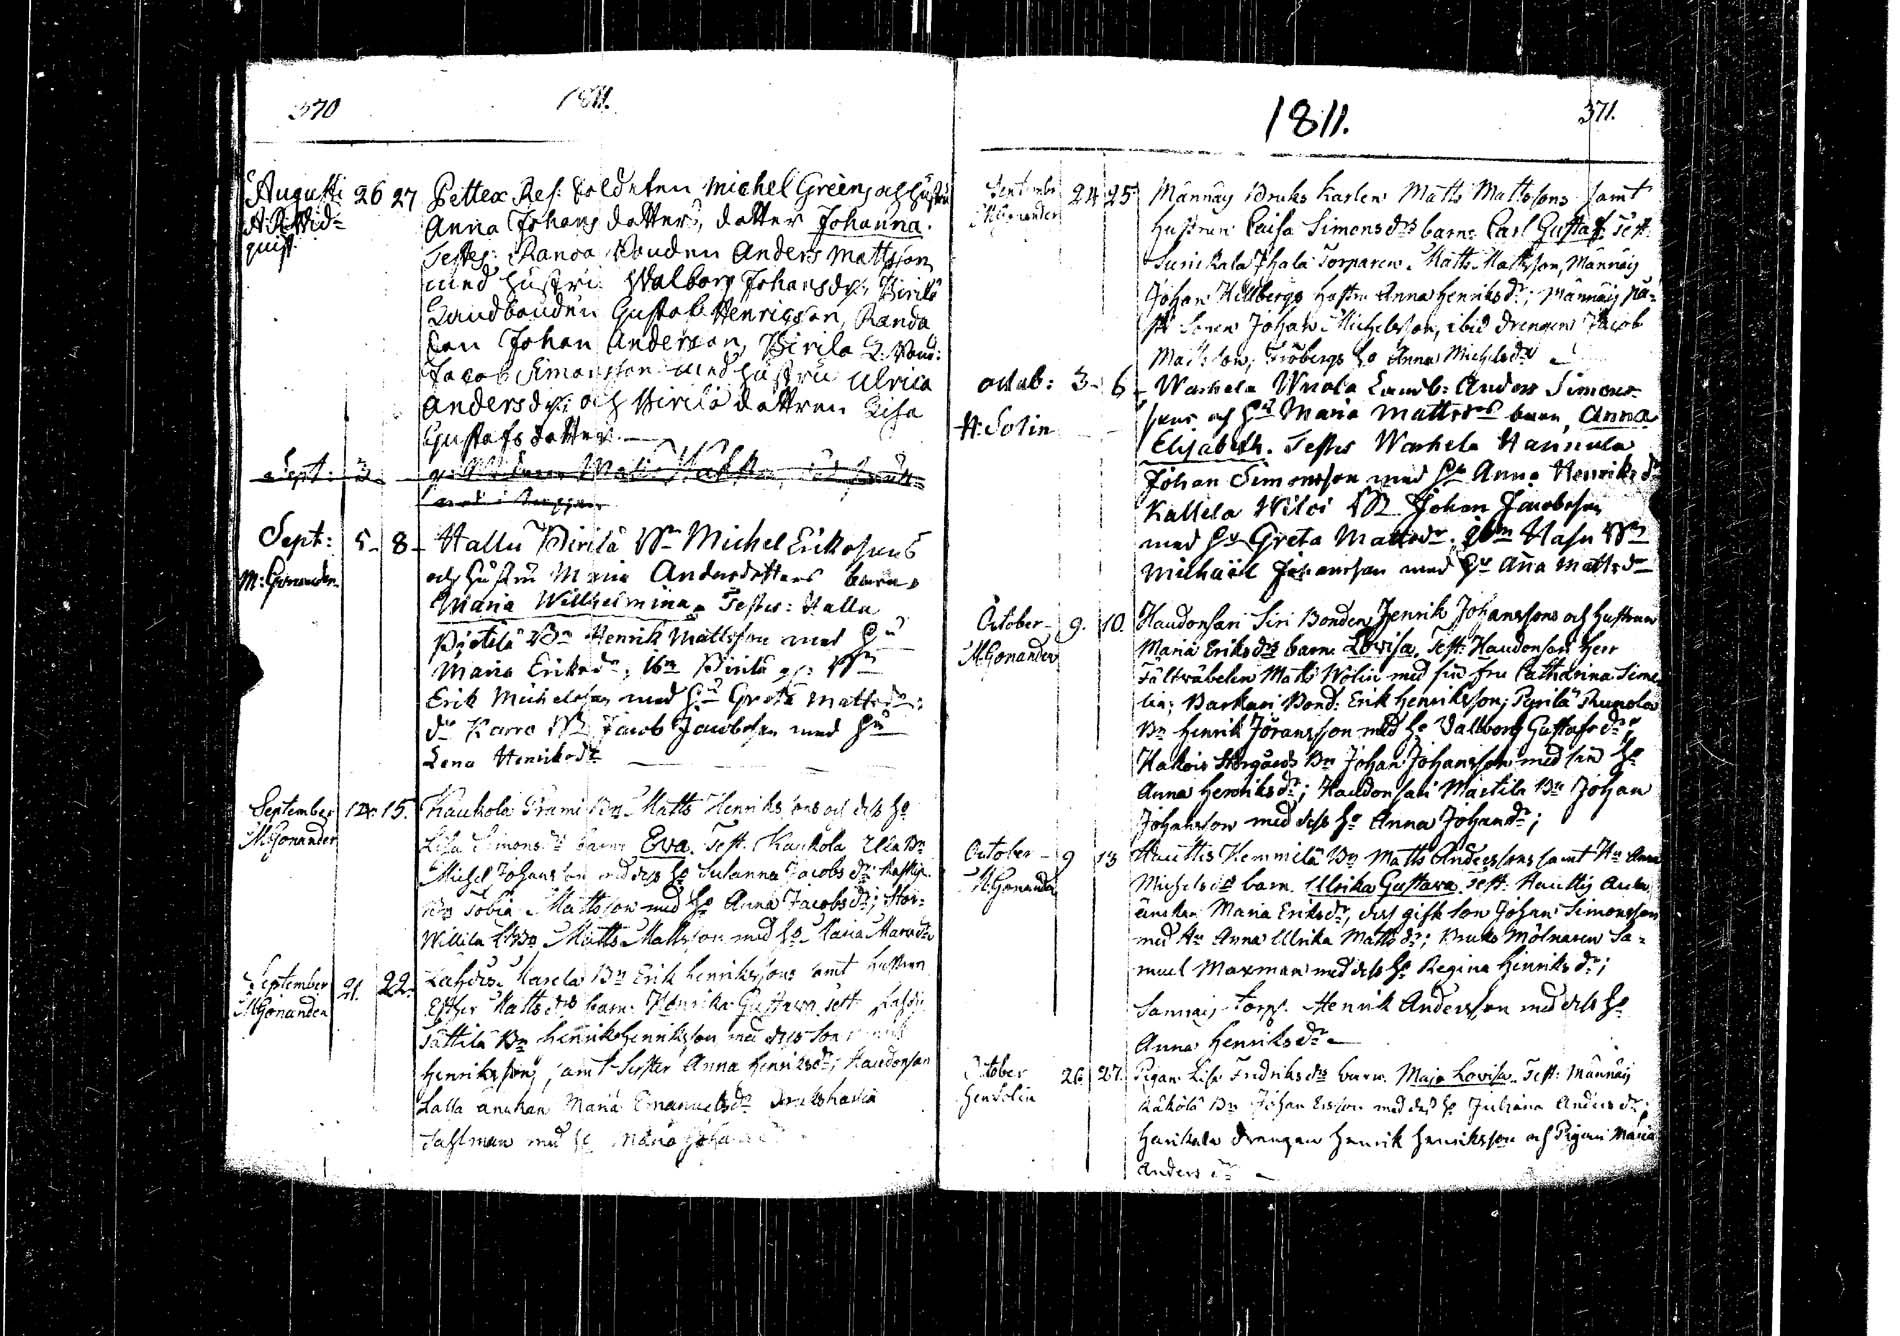 370
1811.
Augusti 26 27 Petter Ref: Soldaten Michel Greens och hustru
A: R: Wid=
quist
Anna Johans dotters, dotter Johanna.
Testes: Randa Bonden Anders Mattsson
med hustru Walborg Johansdr; Pirilä
Landbonden Gustaf Henricson, Randa
Son Johan Anderson, Pirilä L: Bond:
Jacob Simonsson med hustru Ulrica
Andersdr; och Pirilä dottren Lisa
Gustafs dotter.
Sept: 3
Sept: 5 8 Hallu Pirilä Bn Michel Erikssons
M: Gonander
och hustru Maria Andersdotters barn
Maria Willhelmina. Testes: Hallu
Pirtilä Bn Henrik Mattsson med Hu
Maria Eriksdr; ibm Pirilä Bn
Erik Michelsson med Hu Greta Mattsdr;
do Karra Bn Jacob Jacobsson med Hu
Lena Henriksdr
September 14. 15. Kaukola Prami Bn Matts Henrikssons och dess ho
M Gonander
Lisa Simonsdrs barn Eva. Test. Kaukola Bn
Michel Johansson med dess ho Susanna Jacobs dr;
Bn Tobia Mattsson med ho Anna Jacobs dr; Stor=
Willila Bn Matts Mattsson med ho Maria
September 21. 22. Lahdis Karela Bn Erik Henrikssons samt hustrun
M Gonander
Esther Matts drs barn Henrika Gustava. Test.
Tattila Bn Henrik Henriksson med dess son
Henriksson, samt Syster Anna Henriksdr; Haudonsari
Lalla änckan Maria Emanuelsdr
Sahlman med ho Maria
1811.
371.
September 24 25 Männäis Bruks Karlen Matts Mattssons samt
M Gonander
hustrun Caisa Simonsdrs barn: Carl Gustaf Test:
Torparen Matts Mattsson, Männäis
Johan Hellbergs hustru Anna Henriks dr; Männäis
Soren Johan Michelsson, ibid drengen Jacob
Matsson, Fröbergs ho Anna Michels dr
octob: 3 6 Warhela Wuola Landb: Anders Simons=
H: Solin
sons och Hus Maria Mattsdrs barn, Anna
Elisabeth. Testes Warhela Hannula
Johan Simonsson med Hu Anna Henriks dr
Kallela Wiloi Bn Johan Jacobsson
med Hu Greta Mattsdr. ibm Hasu Bn
Michaël Johansson med Hu Anna Mattsdr
October 9. 10. Haudonsari Siri Bonden Henrik Johanssons och hustruns
M. Gonander
Maria Eriks drs barn Lovisa. Test: Haudonsari Herr
Fältwäbelen Matts Wolin med sin fru Catharina Sime
lia; Barkari Bond: Erik Henriksson; Pyrilä Runola
Bn Henrik Jöransson med ho Valborg Gustafs dr;
Hakois Storgårds Bn Johan Johansson med sin ho
Anna Henriks dr; Haudonsari Mactila Bn Johan
Johansson med dess ho Anna Johan dr;
October 9 13 Hauttis Hemmilä Bn Matts Anderssons samt Hs Anna
M. Gonander
Michels drs barn. Ulrika Gustava. Test: Hauttis
änckan Maria Eriksdr, dess gift son Johan Simonsson
med Ho Anna Ulrika Matts dr; Bruks Mölnaren Sa=
muel Maxman med dess ho Regina Henriks dr;
Sannais Torp. Henrik Andersson med dess ho
Anna Henriks dr
October 26 27. Pigan Lisa Fredriks drs barn. Maja Lovisa. Test: Männäis
Hen Solin
Käkölä Bn Johan Ersson med dess ho Juliana Anders dr;
Harikala drengen Henrik Henriksson och Pigan Maria
Anders dr